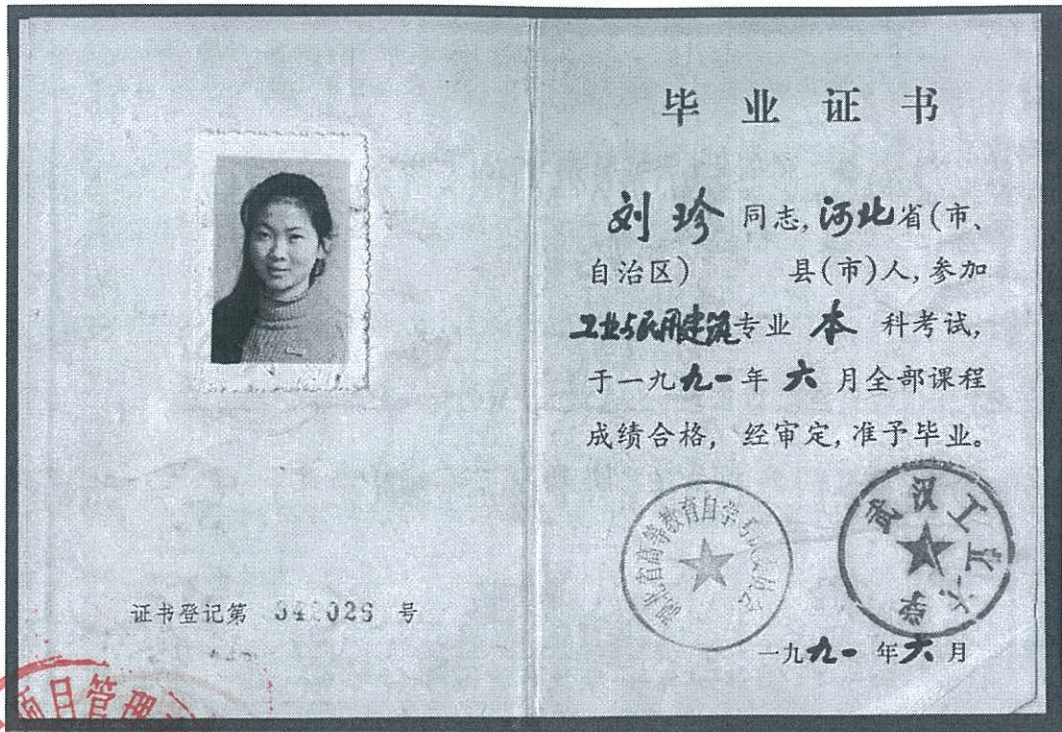 毕业证书
刘珍 同志，河北省(市、
自治区) 县(市)人，参加
工业与民用建筑专业 本 科考试，
于一九九一年 六 月全部课程
成绩合格， 经审定，准予毕业。
湖北省高等教育自学考试委员会
武汉工业大学
一九九一 年 六 月
证书登记第 号
项目管理